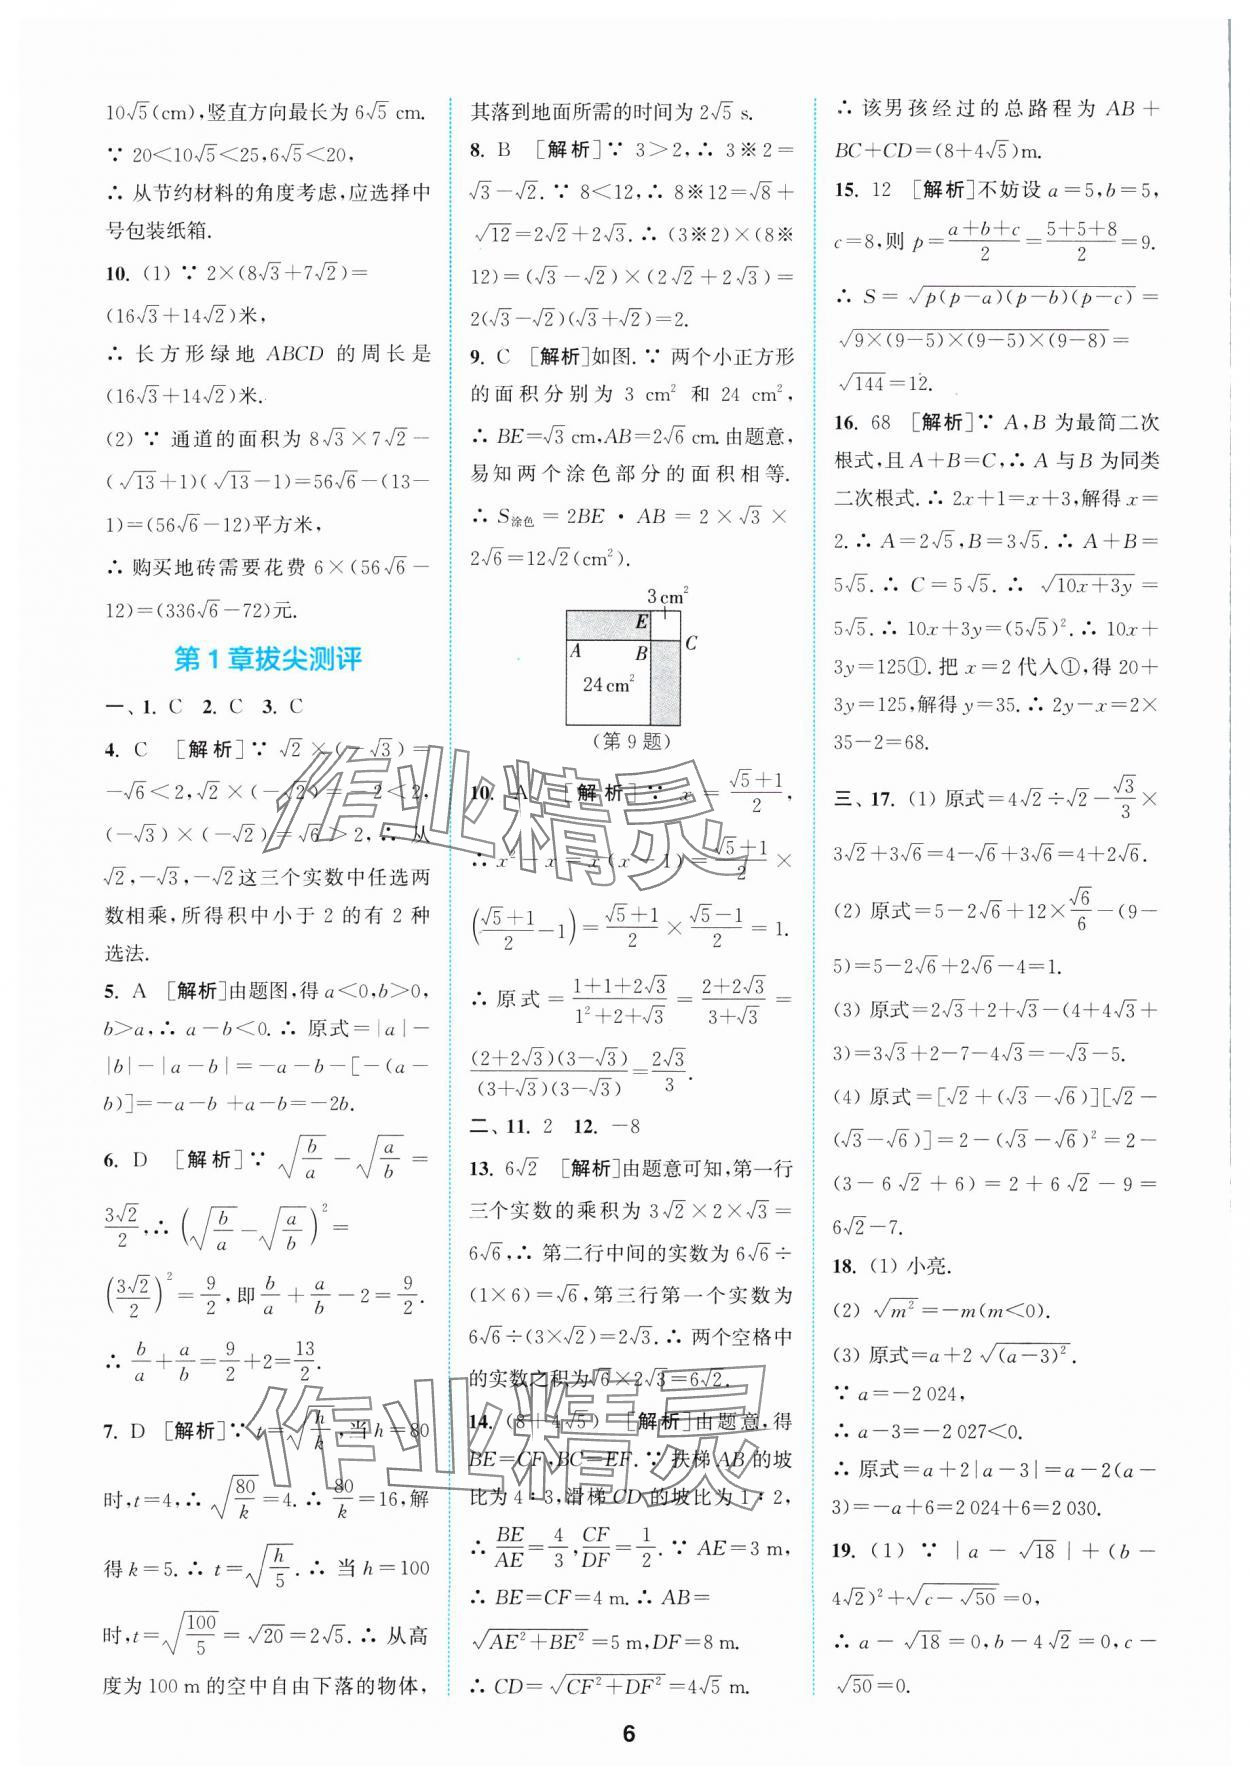 10√5(cm),竖直方向最长为 6√5 cm.
∵ 20<10√5<25,6√5<20,
∴ 从节约材料的角度考虑,应选择中
号包装纸箱.
10. (1) ∵ 2×(8√3+7√2)=
(16√3+14√2)米,
∴ 长方形绿地 ABCD 的周长是
(16√3+14√2)米.
(2) ∵ 通道的面积为 8√3×7√2-
(√13+1)(√13-1)=56√6-(13-
1)=(56√6-12)平方米,
∴ 购买地砖需要花费 6×(56√6-
12)=(336√6-72)元.
第1章拔尖测评
一、1. C 2. C 3. C
4. C [解析]∵ √2×(-√3)=
-√6<2,√2×(-√2)=-2<2,
(-√3)×(-√2)=√6>2,∴ 从
√2,-√3,-√2这三个实数中任选两
数相乘,所得积中小于 2 的有 2 种
选法.
5. A [解析]由题图,得 a<0,b>0,
b>a,∴ a-b<0.∴ 原式=|a|-
|b|-|a-b|=-a-b-[-(a-
b)]=-a-b +a-b=-2b.
6. D [解析]∵ √(b/a)-√(a/b)=
3√2/2,∴ (√(b/a)-√(a/b))²=
(3√2/2)²=9/2,即 b/a+a/b-2=9/2.
∴ b/a+a/b=9/2+2=13/2.
7. D [解析]∵ t=√(h/k),当 h=80
时,t=4,∴ √(80/k)=4.∴ 80/k=16,解
得 k=5.∴ t=√(h/5).∴ 当 h=100
时,t=√(100/5)=√20=2√5.∴ 从高
度为 100 m 的空中自由下落的物体,
其落到地面所需的时间为 2√5 s.
8. B [解析]∵ 3>2,∴ 3※2=
√3-√2.∵ 8<12,∴ 8※12=√8+
√12=2√2+2√3.∴ (3※2)×(8※
12)=(√3-√2)×(2√2+2√3)=
2(√3-√2)(√3+√2)=2.
9. C [解析]如图.∵ 两个小正方形
的面积分别为 3 cm² 和 24 cm²,
∴ BE=√3 cm,AB=2√6 cm.由题意,
易知两个涂色部分的面积相等.
∴ S涂色=2BE·AB=2×√3×
2√6=12√2(cm²).
3 cm²
E
C
A B
24 cm²
(第 9 题)
10. A [解析]∵ x=(√5+1)/2,
∴ x²-x=x(x-1)=(√5+1)/2×
((√5+1)/2-1)=(√5+1)/2×(√5-1)/2=1.
∴ 原式=(1+1+2√3)/(1²+2+√3)=(2+2√3)/(3+√3)=
(2+2√3)(3-√3)/(3+√3)(3-√3)=2√3/3.
二、11. 2 12. -8
13. 6√2 [解析]由题意可知,第一行
三个实数的乘积为 3√2×2×√3=
6√6,∴ 第二行中间的实数为 6√6÷
(1×6)=√6,第三行第一个实数为
6√6÷(3×√2)=2√3.∴ 两个空格中
的实数之积为√6×2√3=6√2.
14. (8+4√5) [解析]由题意,得
BE=CF,BC=EF.∵ 扶梯 AB 的坡
比为 4∶3,滑梯 CD 的坡比为 1∶2,
∴ BE/AE=4/3,CF/DF=1/2.∵ AE=3 m,
∴ BE=CF=4 m.∴ AB=
√(AE²+BE²)=5 m,DF=8 m.
∴ CD=√(CF²+DF²)=4√5 m.
∴ 该男孩经过的总路程为 AB+
BC+CD=(8+4√5)m.
15. 12 [解析]不妨设 a=5,b=5,
c=8,则 p=(a+b+c)/2=(5+5+8)/2=9.
∴ S=√(p(p-a)(p-b)(p-c))=
√(9×(9-5)×(9-5)×(9-8))=
√144=12.
16. 68 [解析]∵ A,B 为最简二次
根式,且 A+B=C,∴ A 与 B 为同类
二次根式.∴ 2x+1=x+3,解得 x=
2.∴ A=2√5,B=3√5.∴ A+B=
5√5.∴ C=5√5.∴ √(10x+3y)=
5√5.∴ 10x+3y=(5√5)².∴ 10x+
3y=125①.把 x=2 代入①,得 20+
3y=125,解得 y=35.∴ 2y-x=2×
35-2=68.
三、17. (1) 原式=4√2÷√2-√3/3×
3√2+3√6=4-√6+3√6=4+2√6.
(2) 原式=5-2√6+12×√6/6-(9-
5)=5-2√6+2√6-4=1.
(3) 原式=2√3+2+√3-(4+4√3+
3)=3√3+2-7-4√3=-√3-5.
(4) 原式=[√2+(√3-√6)][√2-
(√3-√6)]=2-(√3-√6)²=2-
(3-6√2+6)=2+6√2-9=
6√2-7.
18. (1) 小亮.
(2) √(m²)=-m(m<0).
(3) 原式=a+2√((a-3)²).
∵ a=-2 024,
∴ a-3=-2 027<0.
∴ 原式=a+2|a-3|=a-2(a-
3)=-a+6=2 024+6=2 030.
19. (1) ∵ |a-√18|+(b-
4√2)²+√(c-√50)=0,
∴ a-√18=0,b-4√2=0,c-
√50=0.
6
作业精灵
作业精灵